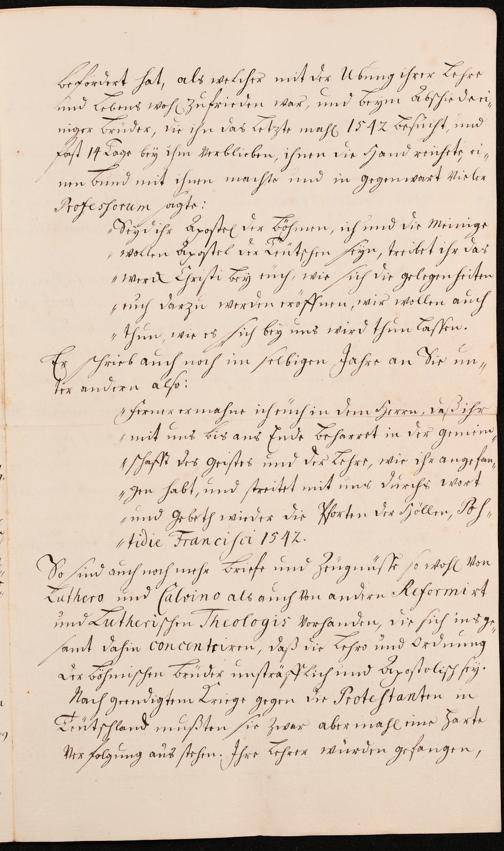 befördert hat, als welcher mit der Übung ihrer Lehre
und Lebens wohl zufrieden war, und beym Abschied ei„
niger Brüder, die ihn das letzte mahl 1542 besucht, und
fast 14 Tage bey ihm verblieben, ihnen die Hand reichete ei„
nen Bund mit ihnen machte und in gegenwart vieler
Professorum sagte:
„Seyd ihr Apostel der Böhmen, ich und die Meinige
„wollen Apostel der Teutschen seyn, treibet ihr das
„werck Christi bey euch, wie sich die gelegenheiten
„euch darzu werden eröffnen, wir wollen auch
„thun, wie es sich bey uns wird thun lassen.
Er schrieb auch noch im selbigen Jahre an Sie un„
ter andern also:
„Ferner ermahne ich euch in dem Herrn, daß ihr
„mit uns bis ans Ende beharret in der gemein„
„schafft des Geistes und der Lehre, wie ihr angefan„
„gen habt, und streitet mit uns durchs wort
„und gebeth wieder die Pforten der Höllen, Poh„
„tidie Francisci 1542.
So sind auch noch mehr Briefe und Zeugnüsse so wohl von
Luthero und Calvino als auch von andern Reformirt
und Lutherischen Theologis vorhanden, die sich ins ge„
samt dahin concentriren, daß die Lehre und Ordnung
der Böhmischen Brüder unsträfflich und Apostolisch sey.
Nach geendigtem Kriege gegen die Protestanten in
Teutschland mußten sie zwar abermahl eine harte
Verfolgung aus stehen. Ihre Lehrer wurden gefangen,